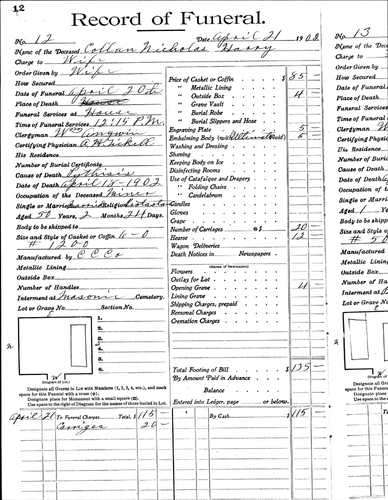 12
Record of Funeral.
No. 12 Date April 21 190
Name of the Deceased Collan Nicholas Harry
Charge to Wife
Order Given by Wife
How Secured
Date of Funeral April 20th
Place of Death
Funeral Services at House
Time of Funeral Services 1 P.M.
Clergyman Wm Angwin
Certifying Physician A H Tickell
His Residence
Number of Burial Certificate
Cause of Death Pythisis
Date of Death April 18-1902
Occupation of the Deceased Miner
Single or Married Married Religion
Aged 50 Years, 2 Months, 24 Days
Body to be shipped to
Size and Style of Casket or Coffin 6-0
# 1200
Manufactured by C C Co
Metallic Lining
Outside Box
Number of Handles
Interment at Masonic Cemetery.
Lot or Grave No. Section No.
1.
2.
3.
4.
5.
6.
(Diagram of Lot.)
Designate all Graves in Lot with Numbers (1, 2, 3, 4, etc.), and mark
space for this Funeral with a cross (+).
Designate place for Monument with a small square (□).
Use space to the right of Diagram for the names of those buried in Lot.
Price of Casket or Coffin $ 85 —
" Metallic Lining
" Outside Box 4 —
" Grave Vault
" Burial Robe
" Burial Slippers and Hose
Engraving Plate 5 —
Embalming Body (with Fluid) 5 —
Washing and Dressing
Shaving
Keeping Body on Ice
Disinfecting Rooms
Use of Catafalque and Drapery
" Folding Chairs
" Candelabrum
Candles
Gloves
Crape
Number of Carriages @ $ 20 —
Hearse 12
Wagon Deliveries
Death Notices in Newspapers
(Names of Newspapers)
Flowers
Outlay for Lot
Opening Grave 4 —
Lining Grave
Shipping Charges, prepaid
Removal Charges
Cremation Charges
Total Footing of Bill $ 135 —
By Amount Paid in Advance
Balance
Entered into Ledger, page or below.
April 21 To Funeral Charges Total, $ 115 — By Cash $ 115 —
Carriges 20 —
No. 13
Name of the
Charge to
Order Given
How Secured
Date of Funeral
Place of Death
Funeral Services
Time of Funeral
Clergyman
Certifying Phys
His Residence
Number of Burial
Cause of Death
Date of Death
Occupation of the
Single or Married
Aged 1 Years
Body to be shipped
Size and Style of
# 50
Manufactured by
Metallic Lining
Outside Box
Number of Handles
Interment at
Lot or Grave No.
(Diagram of Lot.)
Designate all Grav
space for this Funer
Designate place for
Use space to the rig